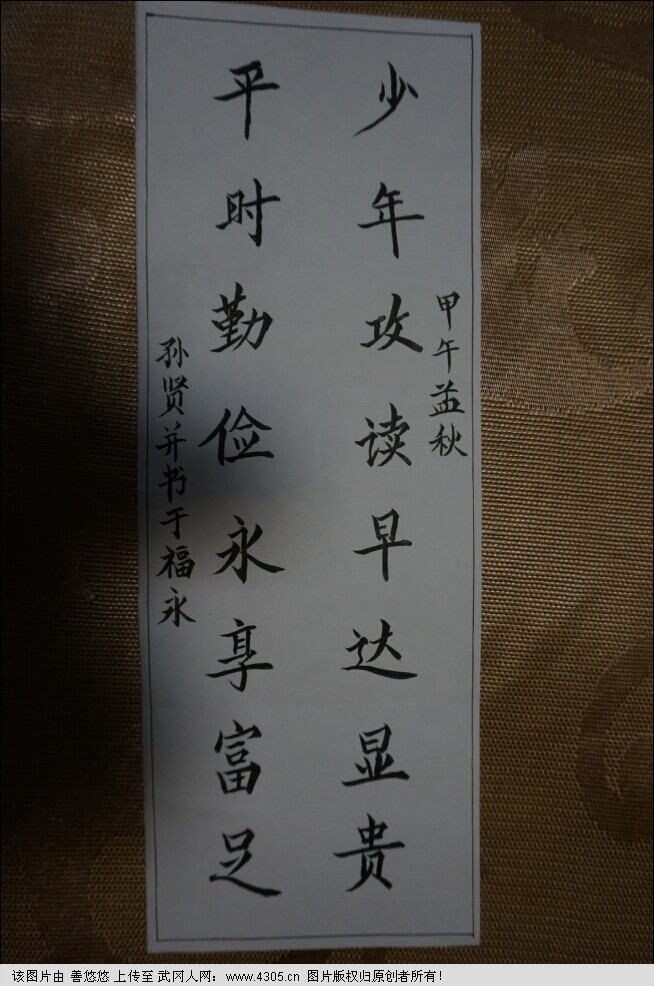 甲午孟秋
少年攻读早达显贵
平时勤俭永享富足
孙贤并书于福永
该图片由 善悠悠 上传至 武冈人网：www.4305.cn 图片版权归原创者所有！